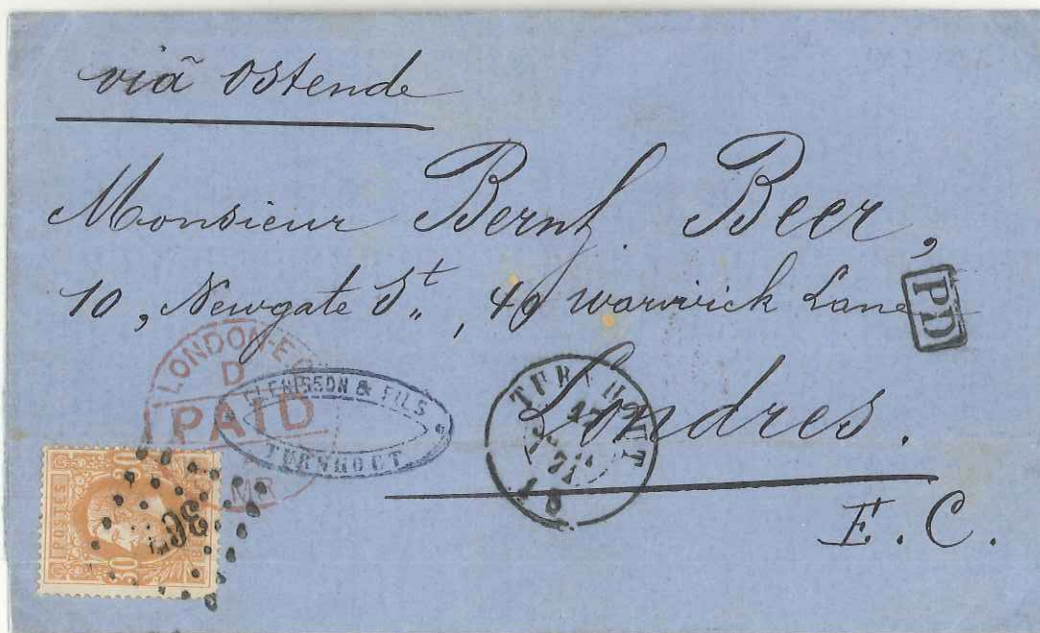 viã Ostende
Monsieur Bernh. Beer,
10, Newgate St., 49 Warwick Lane
PD
LONDON-E.C
D
PAID
GLENISSON & FILS
TURNHOUT
TURNHOUT
Londres.
E. C.
POSTES
30